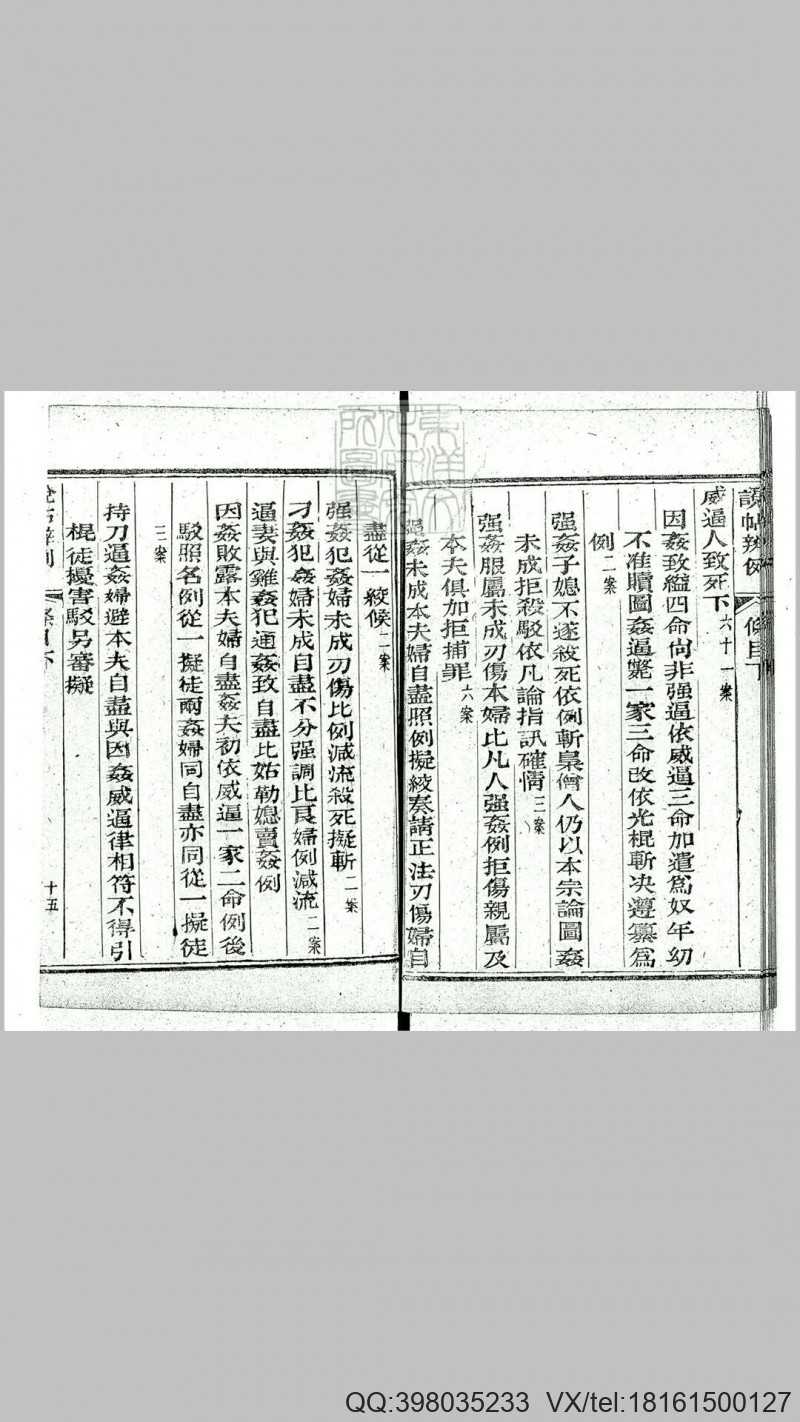 威逼人致死下六十一案
因姦致縊四命尚非强逼依威逼三命加遣爲奴年幼
不准贖圖姦逼斃一家三命改依光棍斬决遵纂爲
例二案
强姦子媳不遂殺死依例斬梟僧人仍以本宗論圖姦
未成拒殺駁依凡論指訊確情三案
强姦服屬未成刃傷本婦比凡人强姦例拒傷親屬及
本夫俱加拒捕罪六案
强姦未成本夫婦自盡照例擬絞奏請正法刃傷婦自
盡從一絞候二案
强姦犯姦婦未成刃傷比例減流殺死擬斬二案
刁姦犯姦婦未成自盡不分强調比良婦例減流二案
逼妻與雞姦犯通姦致自盡比姑勒媳賣姦例
因姦敗露本夫婦自盡姦夫初依威逼一家二命例後
駁照名例從一擬徒兩姦婦同自盡亦同從一擬徒
三案
持刀逼姦婦避本夫自盡與因姦威逼律相符不得引
棍徒擾害駁另審擬
十五
QQ:398035233 VX/tel:18161500127